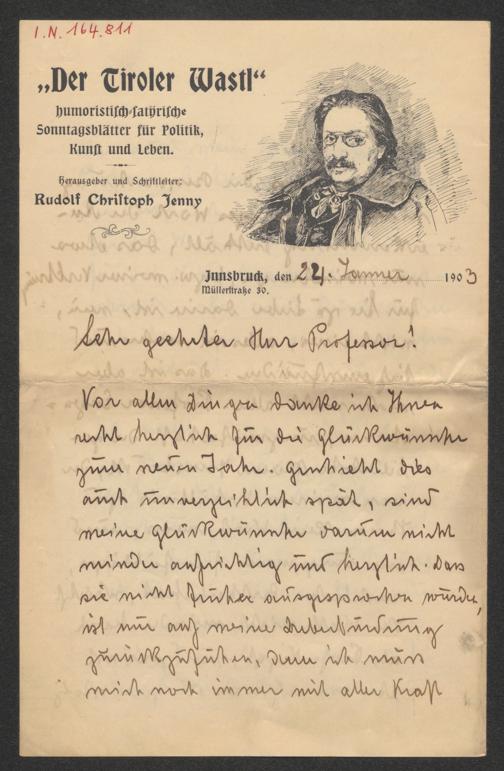 I.N. 164.811
„Der Tiroler Wastl“
humoristisch-satyrische
Sonntagsblätter für Politik,
Kunst und Leben.
Herausgeber und Schriftleiter:
Rudolf Christoph Jenny
Innsbruck, den 22. Jänner 1903
Müllerstraße 30.
Sehr geehrter Herr Professor!
Vor allen Dingen danke ich Ihnen
recht herzlich für die Glückwünsche
zum neuen Jahr. Geschieht dies
auch unverzeihlich spät, sind
meine Glückwünsche darum nicht
minder aufrichtig und herzlich. Dass
sie nicht früher ausgesprochen wurden,
ist nur auf meine Ueberbürdung
zurückzuführen, denn ich muss
mich noch immer mit aller Kraft